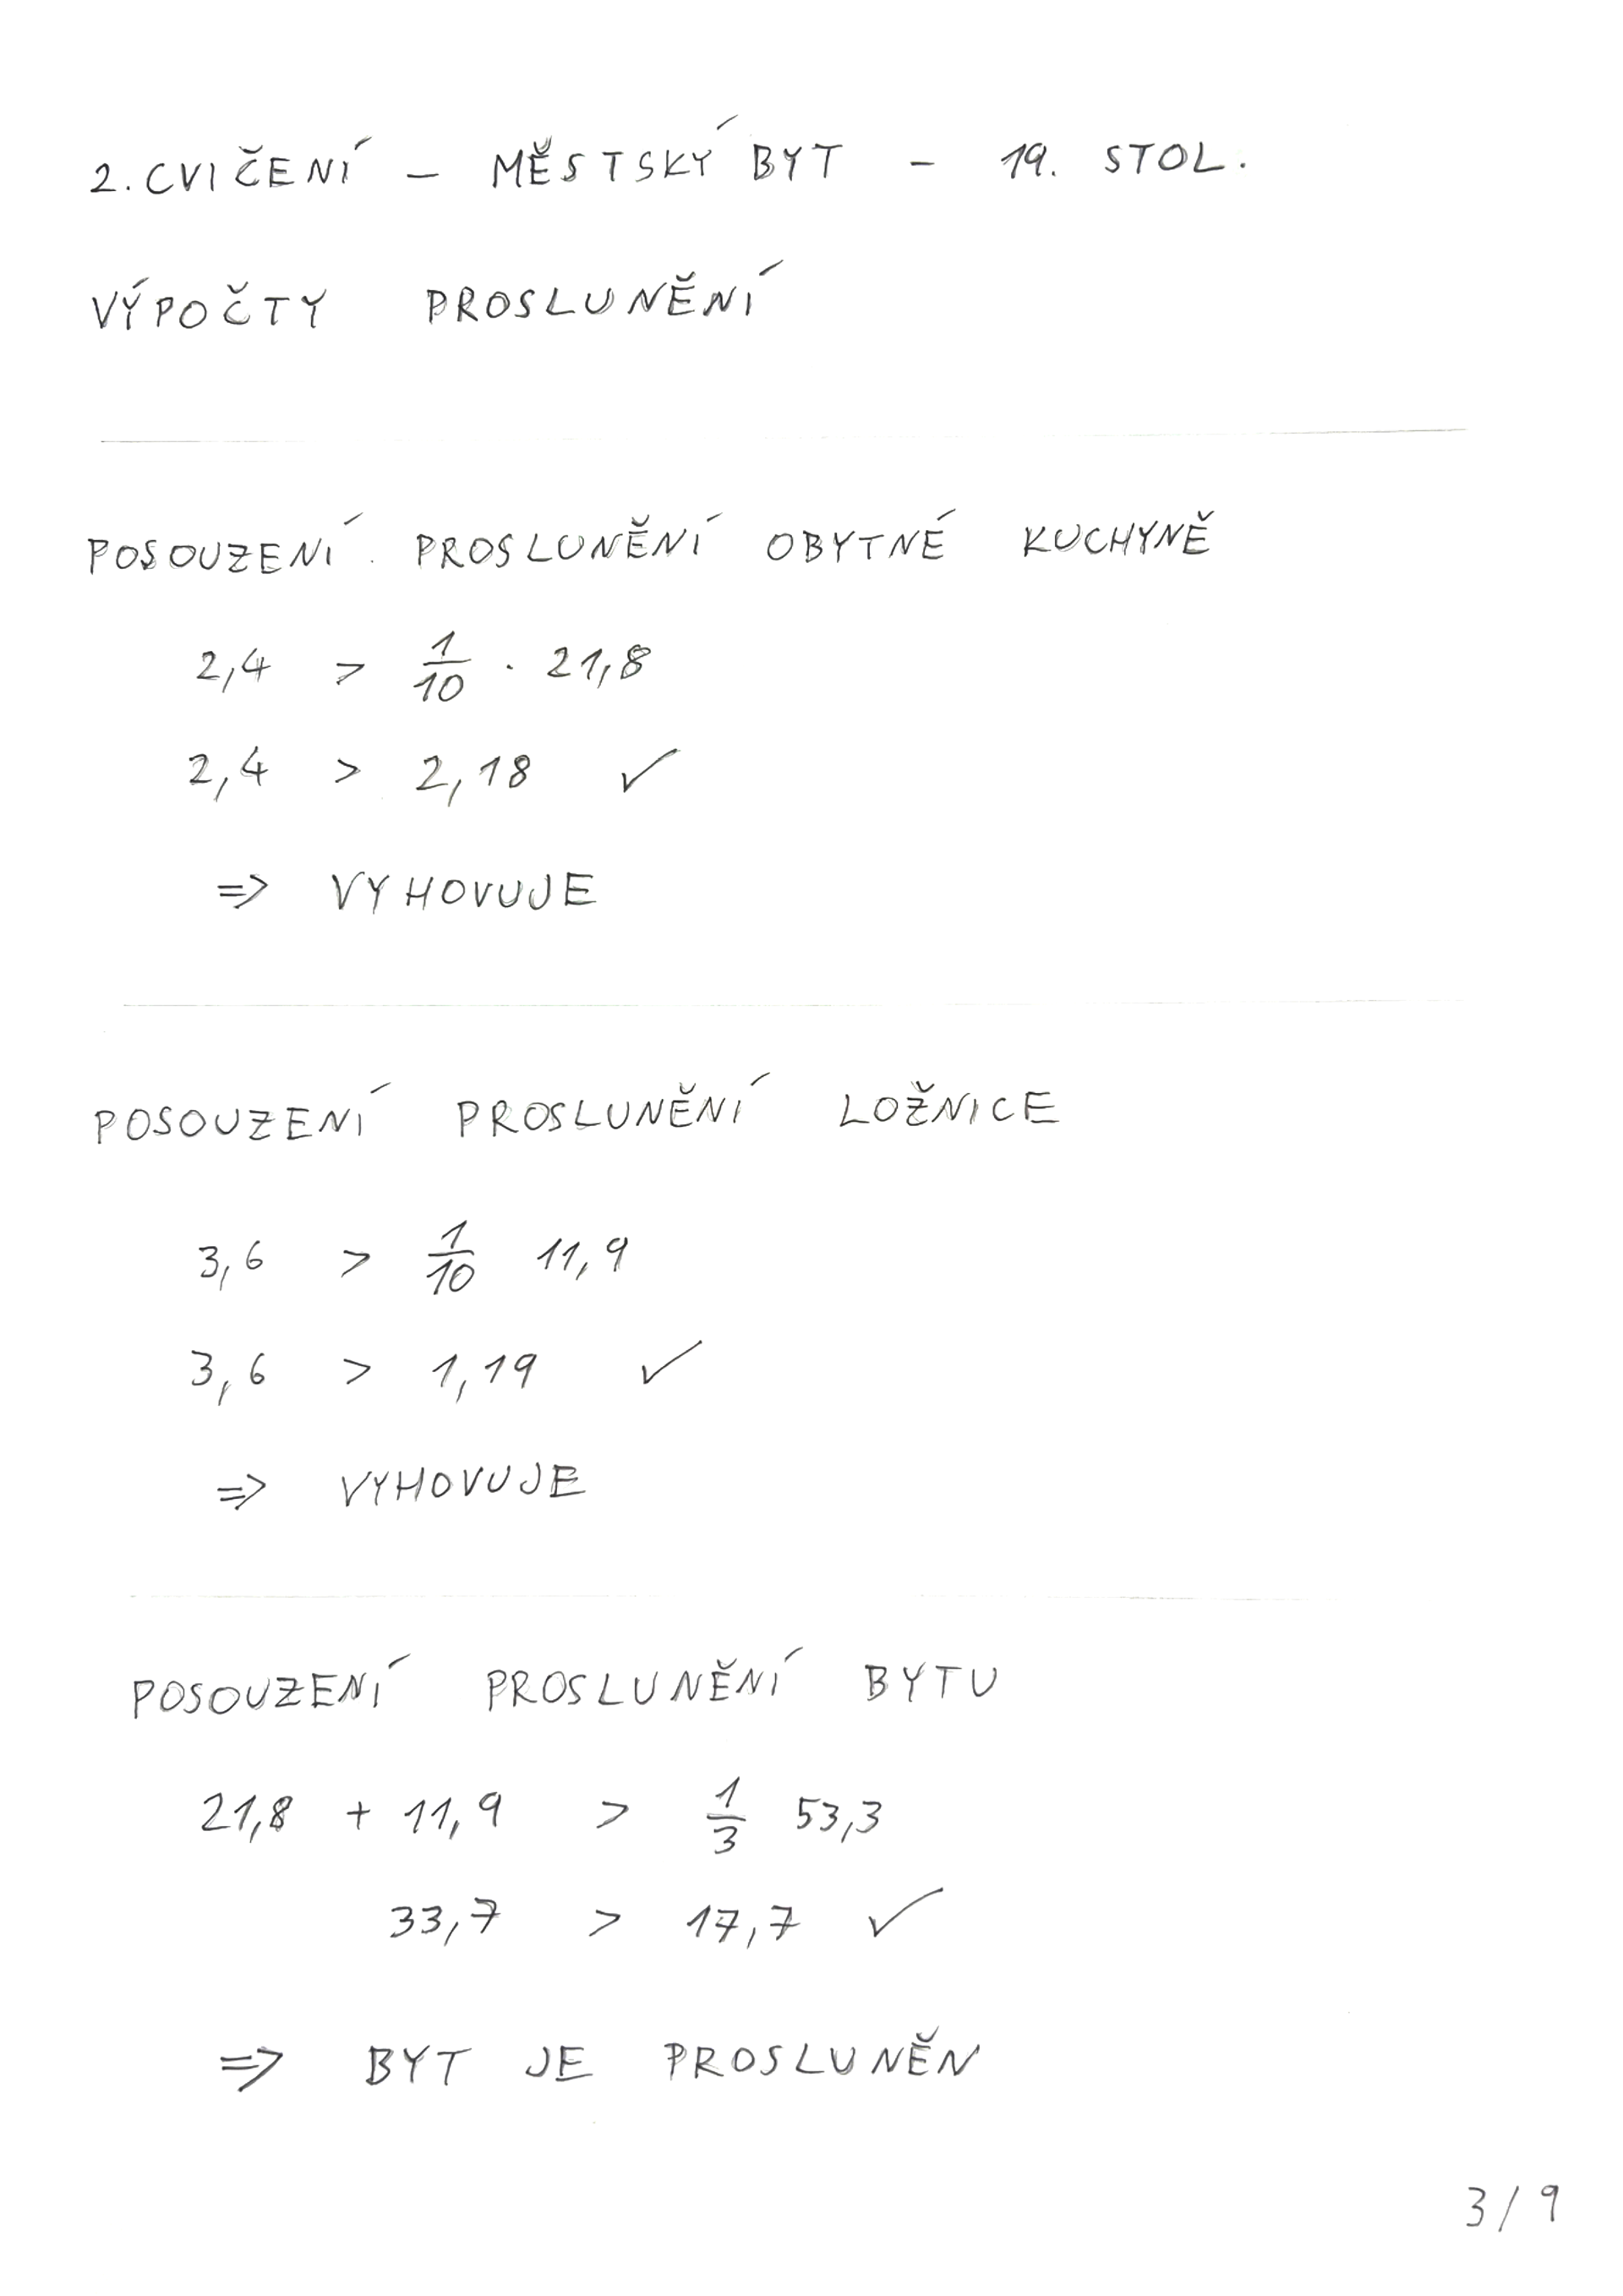 2. CVIČENÍ – MĚSTSKÝ BYT – 19. STOL.
VÝPOČTY PROSLUNĚNÍ
POSOUZENÍ PROSLUNĚNÍ OBYTNÉ KUCHYNĚ
2,4 > 1/10 · 21,8
2,4 > 2,18 ✓
⇒ VYHOVUJE
POSOUZENÍ PROSLUNĚNÍ LOŽNICE
3,6 > 1/10 11,9
3,6 > 1,19 ✓
⇒ VYHOVUJE
POSOUZENÍ PROSLUNĚNÍ BYTU
21,8 + 11,9 > 1/3 53,3
33,7 > 17,7 ✓
⇒ BYT JE PROSLUNĚN
3/9